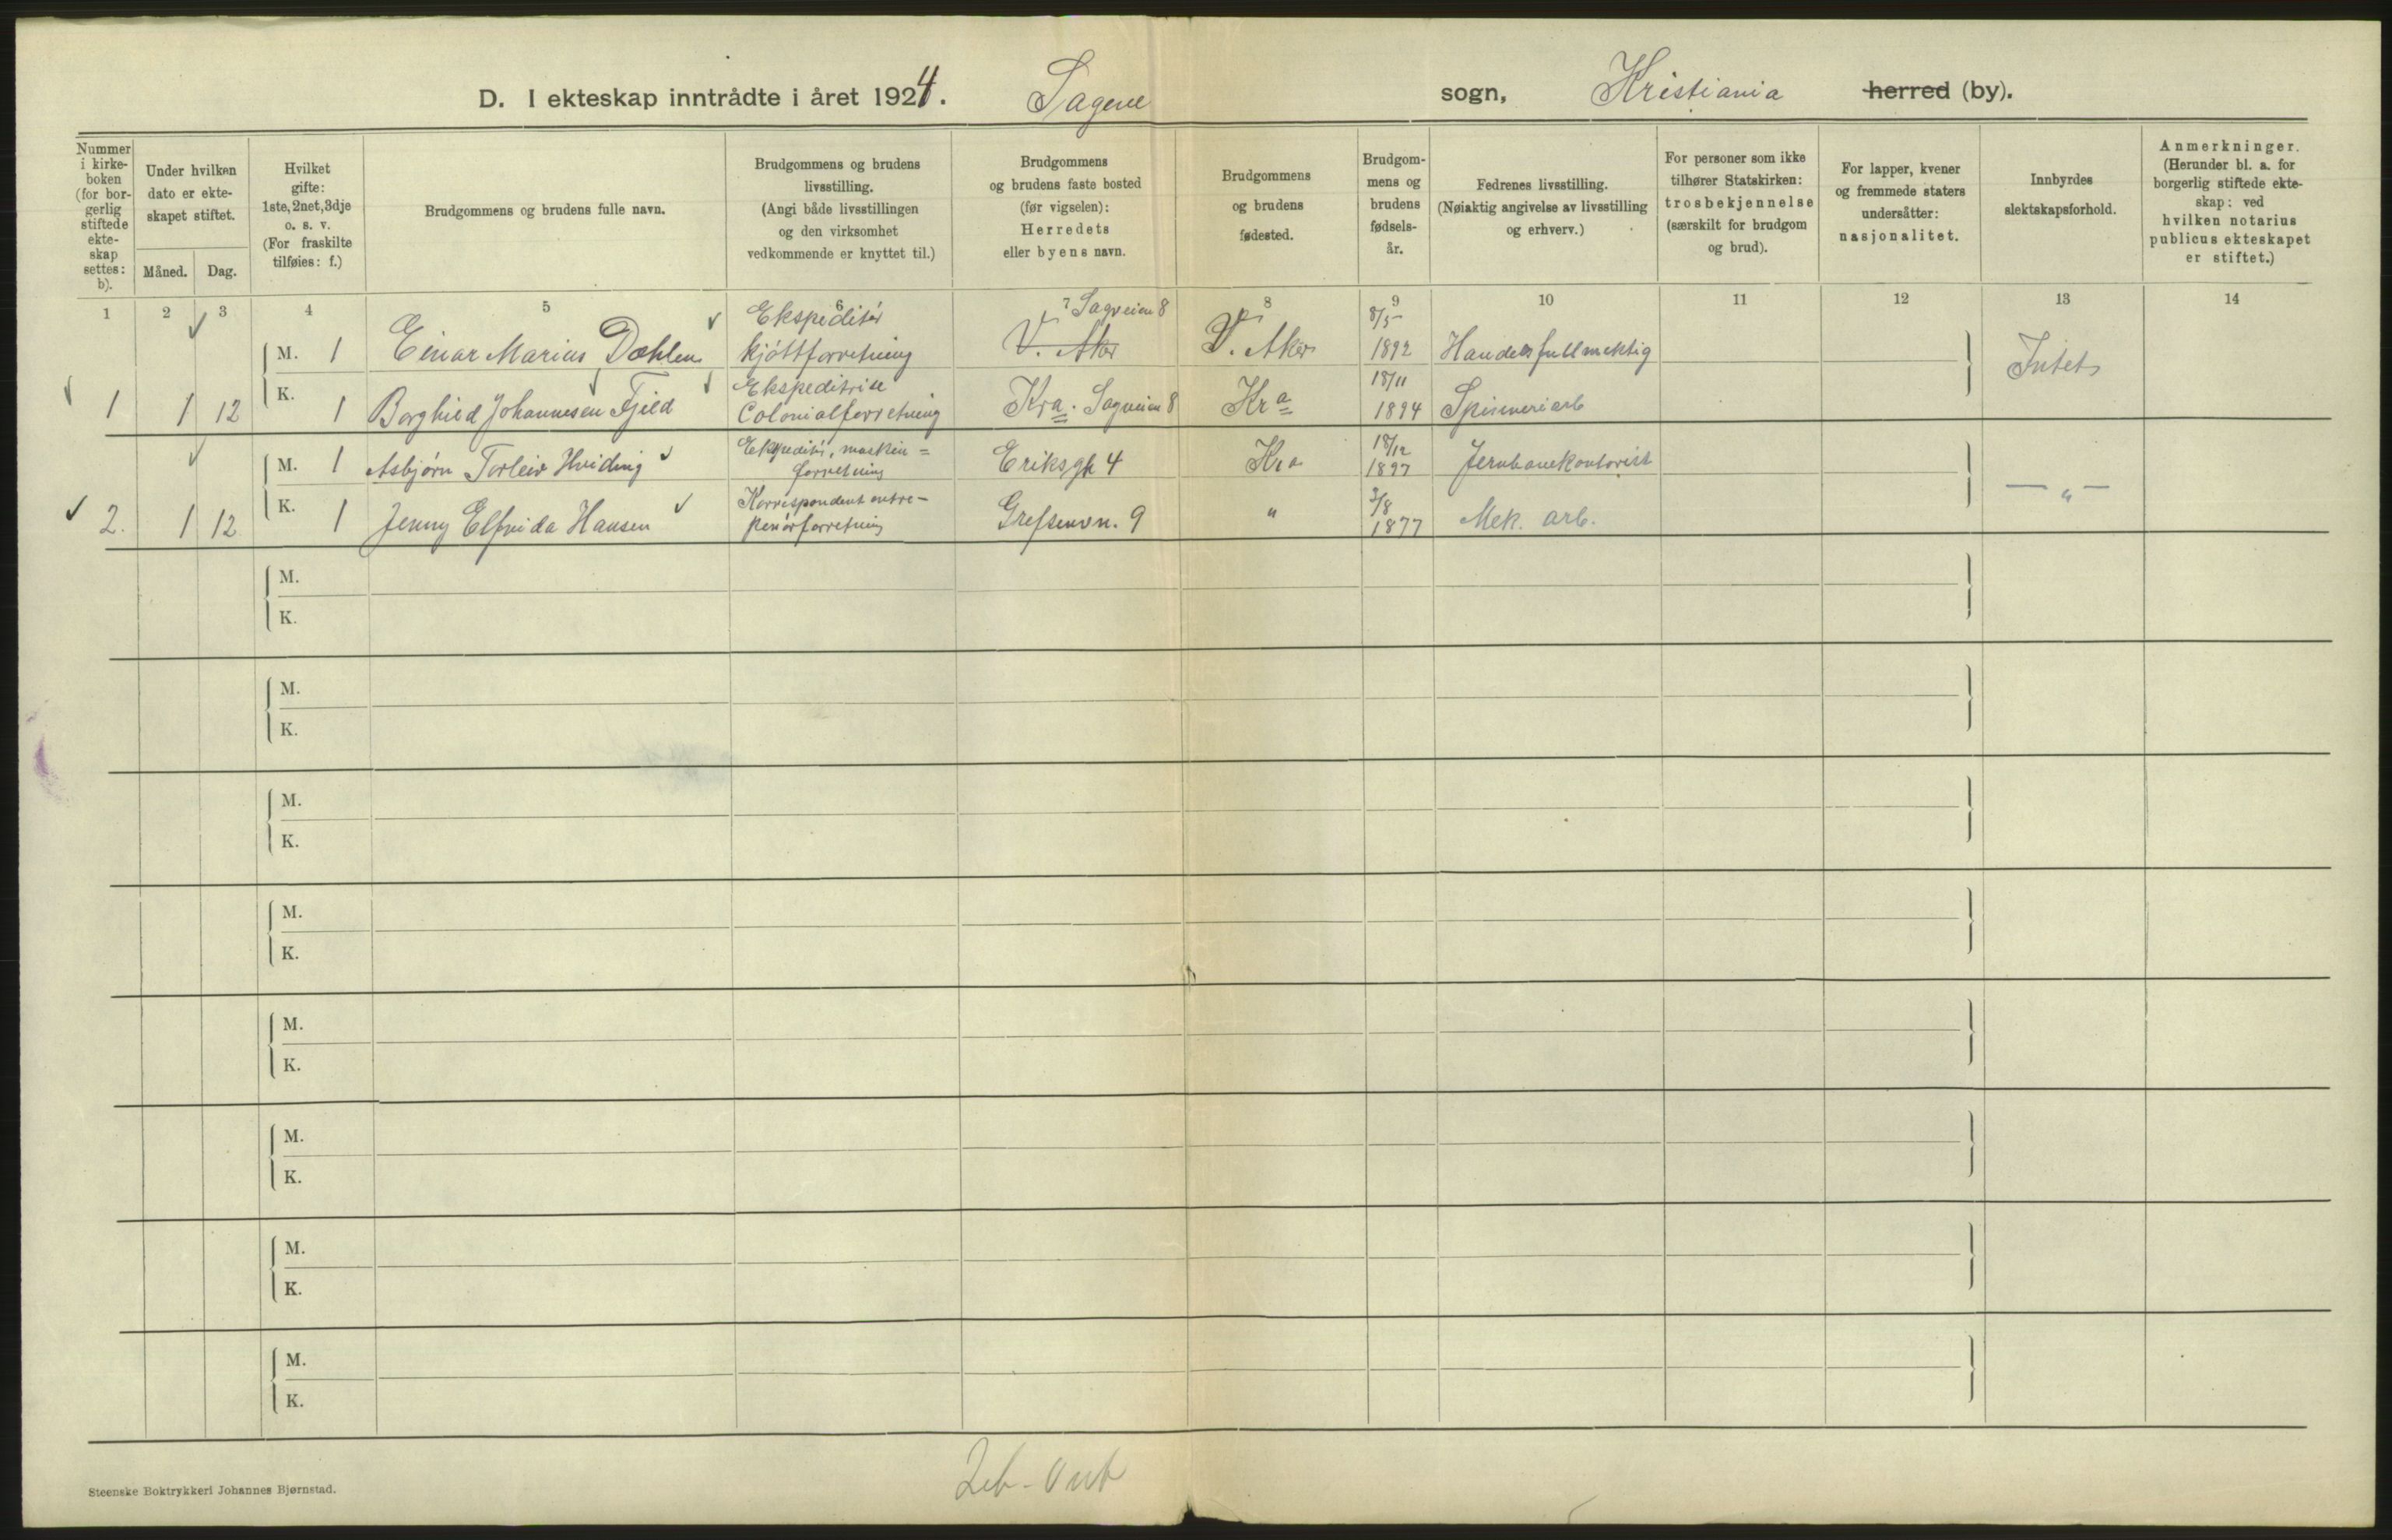 D. I ekteskap inntrådte i året 1924. Sagene sogn, Kristiania herred (by).
Nummer i kirke-boken (for bor-gerlig stiftede ekte-skap settes: b).
Under hvilken dato er ekte-skapet stiftet.
Måned. Dag.
Hvilket gifte: 1ste, 2net, 3dje o. s. v. (For fraskilte tilføies: f.)
Brudgommens og brudens fulle navn.
Brudgommens og brudens livsstilling. (Angi både livsstillingen og den virksomhet vedkommende er knyttet til.)
Brudgommens og brudens faste bosted (før vigselen): Herredets eller byens navn.
Brudgommens og brudens fødested.
Brudgom-mens og brudens fødsels-år.
Fedrenes livsstilling. (Nøiaktig angivelse av livsstilling og erhverv.)
For personer som ikke tilhører Statskirken: trosbekjennelse (særskilt for brudgom og brud).
For lapper, kvener og fremmede staters undersåtter: nasjonalitet.
Innbyrdes slektskapsforhold.
Anmerkninger. (Herunder bl. a. for borgerlig stiftede ekte-skap: ved hvilken notarius publicus ekteskapet er stiftet.)
1 2 3 4 5 6 7 8 9 10 11 12 13 14
M. 1 Einar Marius Dæhlen Ekspeditør kjøttforretning Sagveien 8 V. Aker V. Aker 8/5 1892 Handelsfullmektig Intet
1 1 12 K. 1 Borghild Johannesen Fjeld Ekspeditrise Colonialforretning Kra. Sagveien 8 Kra 18/11 1894 Spinneriarb
M. 1 Asbjørn Torleiv Hviding Ekspeditør, maskin=forretning Eriksgt 4 Kra 18/12 1897 Jernbanekontorist — „ —
2. 1 12 K. 1 Jenny Elfrida Hansen Korrespondent entre-penørforretning Grefsenvn. 9 " 3/8 1877 Mek. arb.
M.
K.
M.
K.
M.
K.
M.
K.
M.
K.
M.
K.
M.
K.
M.
K.
Steenske Boktrykkeri Johannes Bjørnstad.